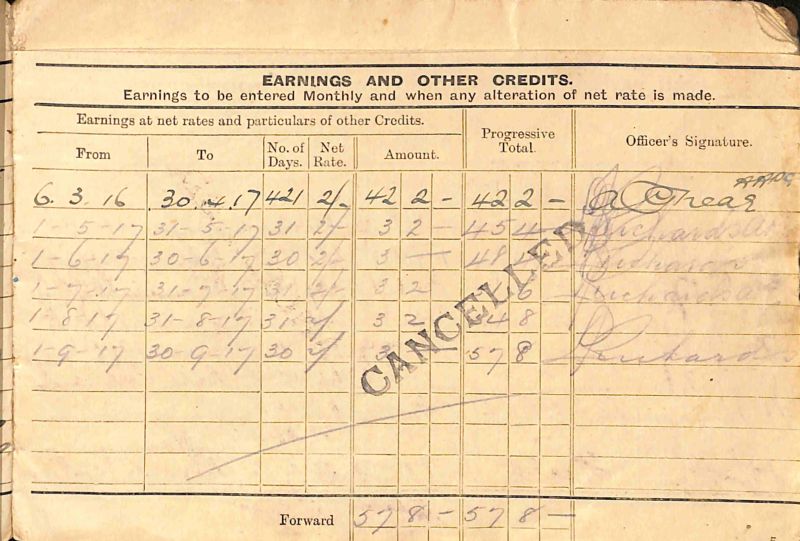 EARNINGS AND OTHER CREDITS.
Earnings to be entered Monthly and when any alteration of net rate is made.
Earnings at net rates and particulars of other Credits. Progressive Total. Officer's Signature.
From To No. of Days. Net Rate. Amount.
6.3.16 30.4.17 421 2/- 42 2 - 42 2 -
1-5-17 31-5-17 31 2/- 3 2 - 45 4 -
1-6-17 30-6-17 30 2/- 3 - 48
1-7-17 31-7-17 31 2/- 3 2 6
1-8-17 31-8-17 31 2/ 3 2 8
1-9-17 30-9-17 30 2/ 3 57 8
CANCELLED
Forward 57 8 - 57 8 -